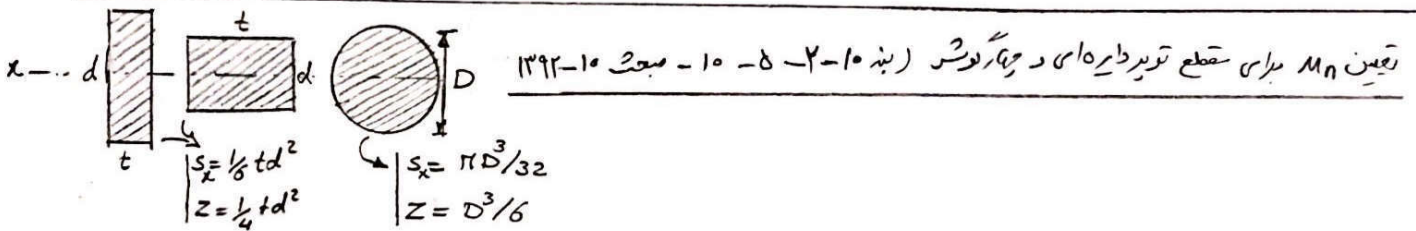 تعیین Mn برای مقطع توپر دایره‌ای و چهارگوش (بند ۱۰-۲-۵-۱۰ - مبحث ۱۰-۱۳۹۲
x --·· d
t
t
d
D
Sx = 1/6 td²
Z = 1/4 td²
Sx = πD³/32
Z = D³/6